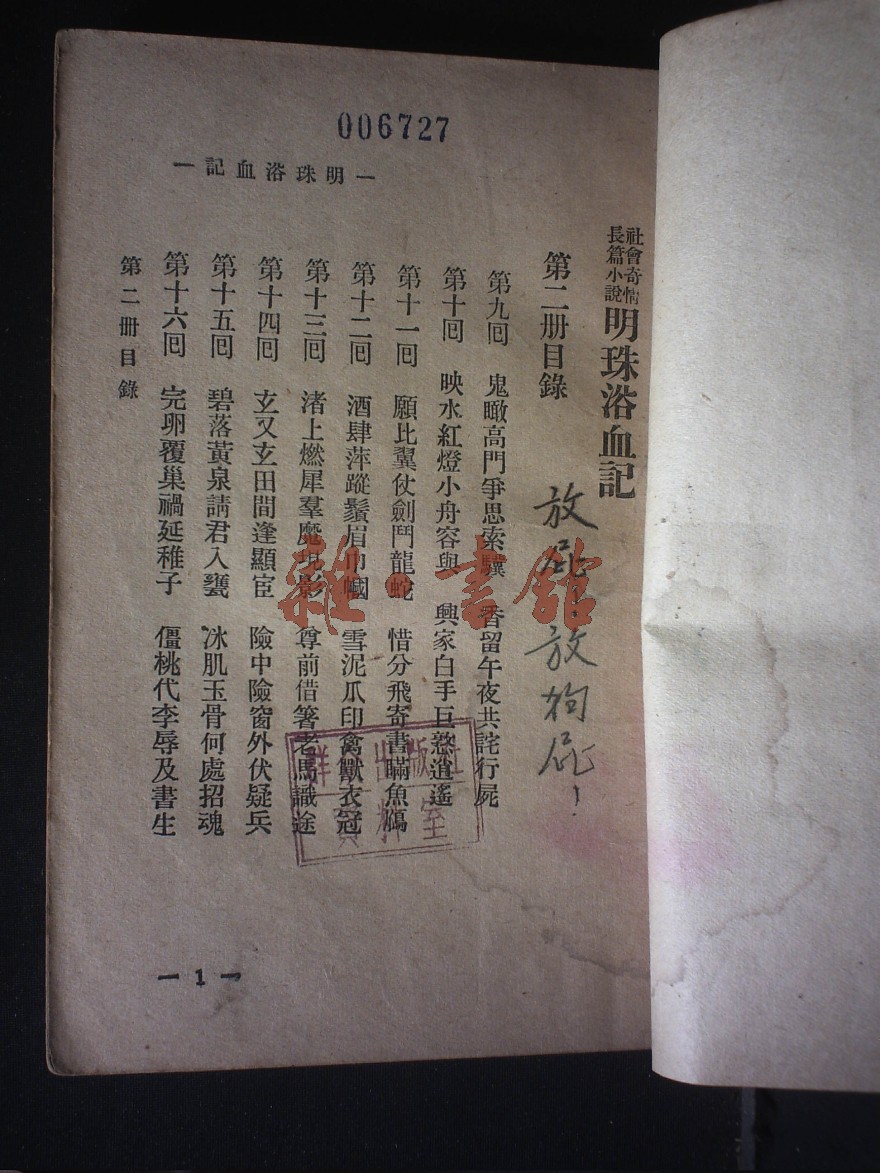 006727
一 明珠浴血記 一
社會奇情
長篇小說
明珠浴血記
第二册目錄
放屁！放狗屁！
第九囘 鬼瞰高門爭思索驥 香留午夜共詫行屍
第十囘 映水紅燈小舟容與 興家白手巨憝逍遙
第十一囘 願比翼仗劍鬥龍蛇 惜分飛寄書瞞魚鴈
第十二囘 酒肆萍蹤鬚眉巾幗 雪泥爪印禽獸衣冠
第十三囘 渚上燃犀羣魔現影 尊前借箸老馬識途
第十四囘 玄又玄田間逢顯宦 險中險窗外伏疑兵
第十五囘 碧落黃泉請君入甕 冰肌玉骨何處招魂
第十六囘 完卵覆巢禍延稚子 僵桃代李辱及書生
第二册目錄
— 1 —
雜·書館
群 出版社
資料室